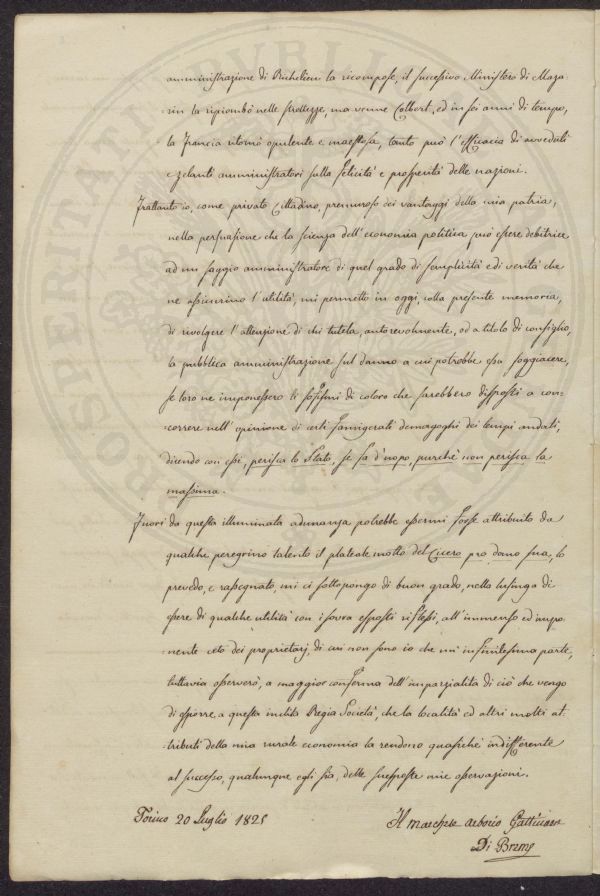 amministrazione di Richelieu la ricompose, il successivo Ministero di Maza=
rin la ripiombò nelle strettezze, ma venne Colbert, ed in sei anni di tempo,
la Francia ritornò opulente e maestosa, tanto può l'efficacia di avveduti
e zelanti amministratori sulla felicità e prosperità delle nazioni.
Frattanto io, come privato Cittadino, premuroso dei vantaggi della mia patria,
nella persuasione che la scienza dell'economia politica può essere debitrice
ad un saggio amministratore di quel grado di semplicità e di verità che
ne assicurino l'utilità, mi permetto in oggi, colla presente memoria,
di rivolgere l'attenzione di chi tutela, autorevolmente, od a titolo di consiglio,
la pubblica amministrazione sul danno a cui potrebbe essa soggiacere,
se loro ne imponessero li sofismi di coloro che sarebbero disposti a con=
=correre nell'opinione di certi famigerati demagoghi dei tempi andati,
dicendo con essi, perisca lo Stato, se fa d'uopo, purchè non perisca la
massima.
Fuori da questa illuminata adunanza potrebbe essermi forse attribuito da
qualche peregrino talento il plateale motto del Cicero pro domo sua, lo
prevedo, e rassegnato, mi ci sottopongo di buon grado, nella lusinga di
essere di qualche utilità con i sovra esposti riflessi, all'immenso ed impo=
nente ceto dei proprietarj, di cui non sono io che un'infinitesima parte,
tuttavia osserverò, a maggior conferma dell'imparzialità di ciò che vengo
di esporre, a questa inclita Regia Società, che la località ed altri molti at=
=tributi della mia rurale economia la rendono quasichè indifferente
al successo, qualunque egli sia, delle suesposte mie osservazioni.
Torino 20 Luglio 1825
Il marchese Arborio Gattinara
Di Breme